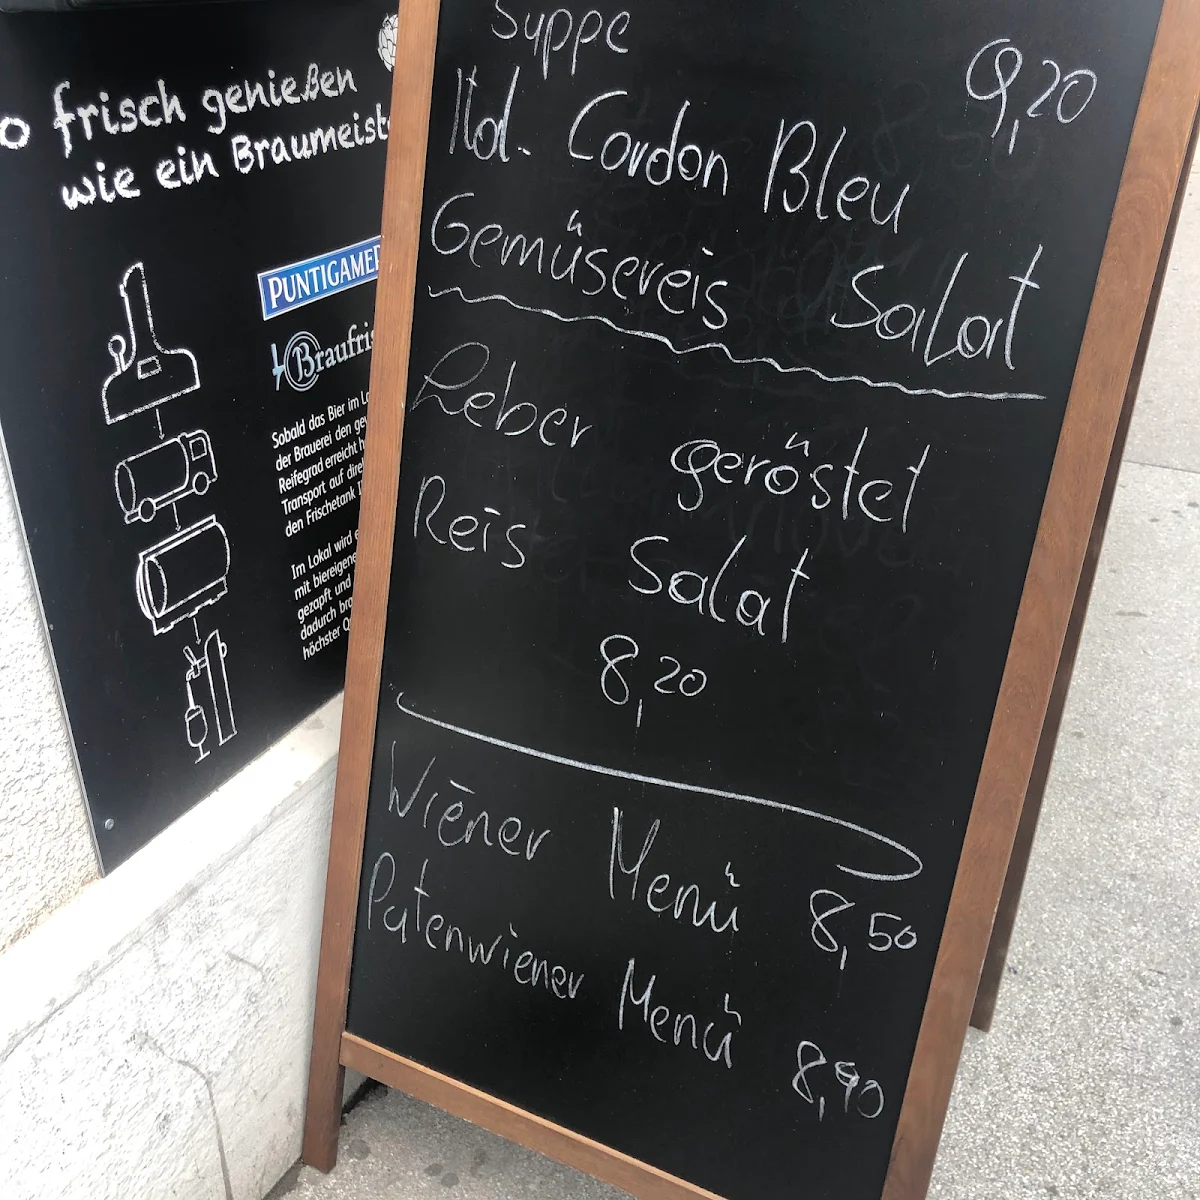 frisch genießen
wie ein Braumeist
PUNTIGAMER
Braufris
Sobald das Bier im La
der Brauerei den gew
Reifegrad erreicht h
Transport auf dire
den Frischetank
Im Lokal wird e
mit biereigene
gezapft und
dadurch bra
höchster Q
Suppe
9,20
Ital. Cordon Bleu
Gemüsereis Salat
Leber geröstet
Reis Salat
8,20
Wiener Menü 8,50
Putenwiener Menü
8,90